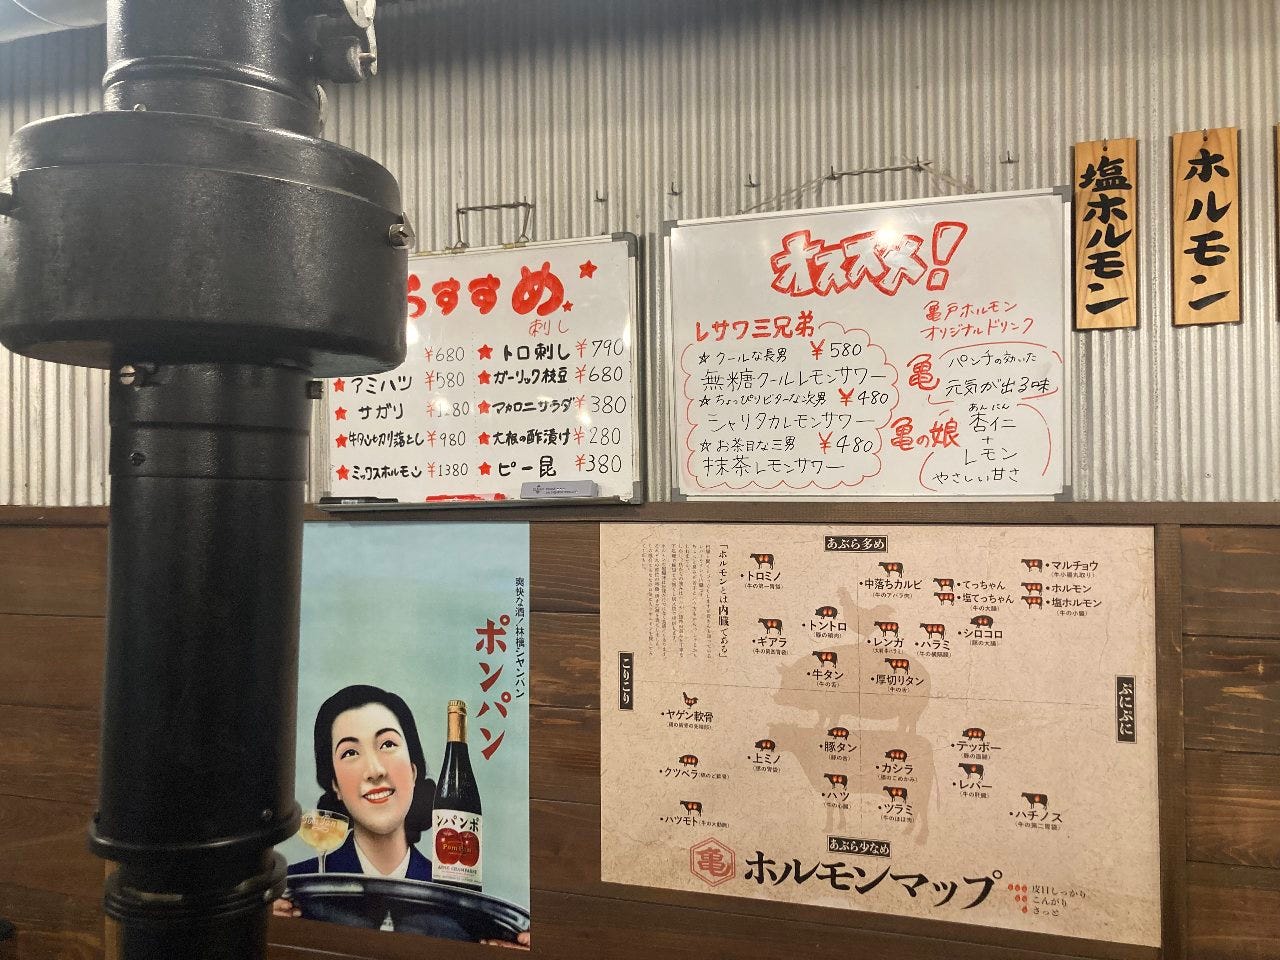 おすすめ
刺し
¥680
アミハツ ¥580
サガリ
牛タン切り落とし ¥980
ミックスホルモン ¥1380
トロ刺し ¥790
ガーリック枝豆 ¥680
マカロニサラダ ¥380
大根の酢漬け ¥280
ピー昆 ¥380
オススメ!
レサワ三兄弟
☆クールな長男 ¥580
無糖クールレモンサワー
☆ちょっぴりビターな次男 ¥480
シャリタカレモンサワー
☆お茶目な三男 ¥480
抹茶レモンサワー
亀戸ホルモン
オリジナルドリンク
亀 パンチの効いた
元気が出る味
亀の娘
あんにん
杏仁
+
レモン
やさしい甘さ
塩ホルモン
ホルモン
爽快な酒!林檎シャンパン
ポンパン
ンパンポ
Pom Pan
APPLE CHAMPAGNE
「ホルモンとは内臓である」
あぶら多め
こりこり
ぷにぷに
あぶら少なめ
・トロミノ
(牛の第一胃袋)
・中落ちカルビ
(牛のアバラ肉)
・てっちゃん
・塩てっちゃん
(牛の大腸)
・マルチョウ
(牛小腸丸取り)
・ホルモン
・塩ホルモン
(牛の小腸)
・トントロ
(豚の頬肉)
・ギアラ
・レンガ
・ハラミ
(牛の横隔膜)
・シロコロ
(豚の大腸)
・牛タン
(牛の舌)
・厚切りタン
(牛の舌)
・ヤゲン軟骨
・クツベラ
・上ミノ
・豚タン
(豚の舌)
・カシラ
(豚のこめかみ)
・テッポー
(豚の直腸)
・レバー
(牛の肝臓)
・ハツモト
(牛の大動脈)
・ハツ
(牛の心臓)
・ツラミ
(牛のほほ肉)
・ハチノス
(牛の第二胃袋)
亀
ホルモンマップ
皮目しっかり
こんがり
さっと